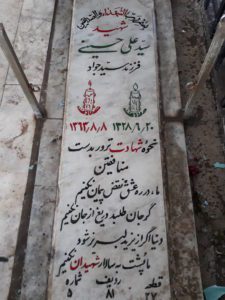 شهید
سید علی حسینی
فرزند سید جواد
۱۳۶۲٫۸٫۸ ۱۳۲۸٫۶٫۲۰
نحوه شهادت ترور بدست
منافقین
ما در ره عشق نقض پیمان نکنیم
گر جان طلبد دریغ از جان نکنیم
دنیا اگر از یزید لبریز شود
ما پشت به سالار شهیدان نکنیم
قطعه ردیف شماره
۲۷ ۸۱ ۵